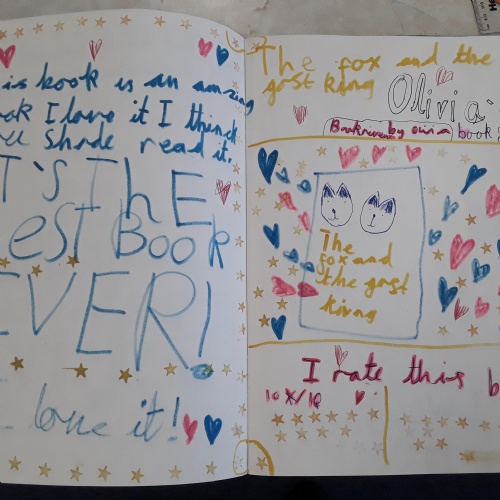 is book is an amazing
ook I love it I think
ou Shode read it.
T's ThE
est Book
EVER!
love it!
The fox and the
gost king
Olivia's
Bookreveiw by olivia book
The
fox and
the gost
king
I rate this b
10X/10